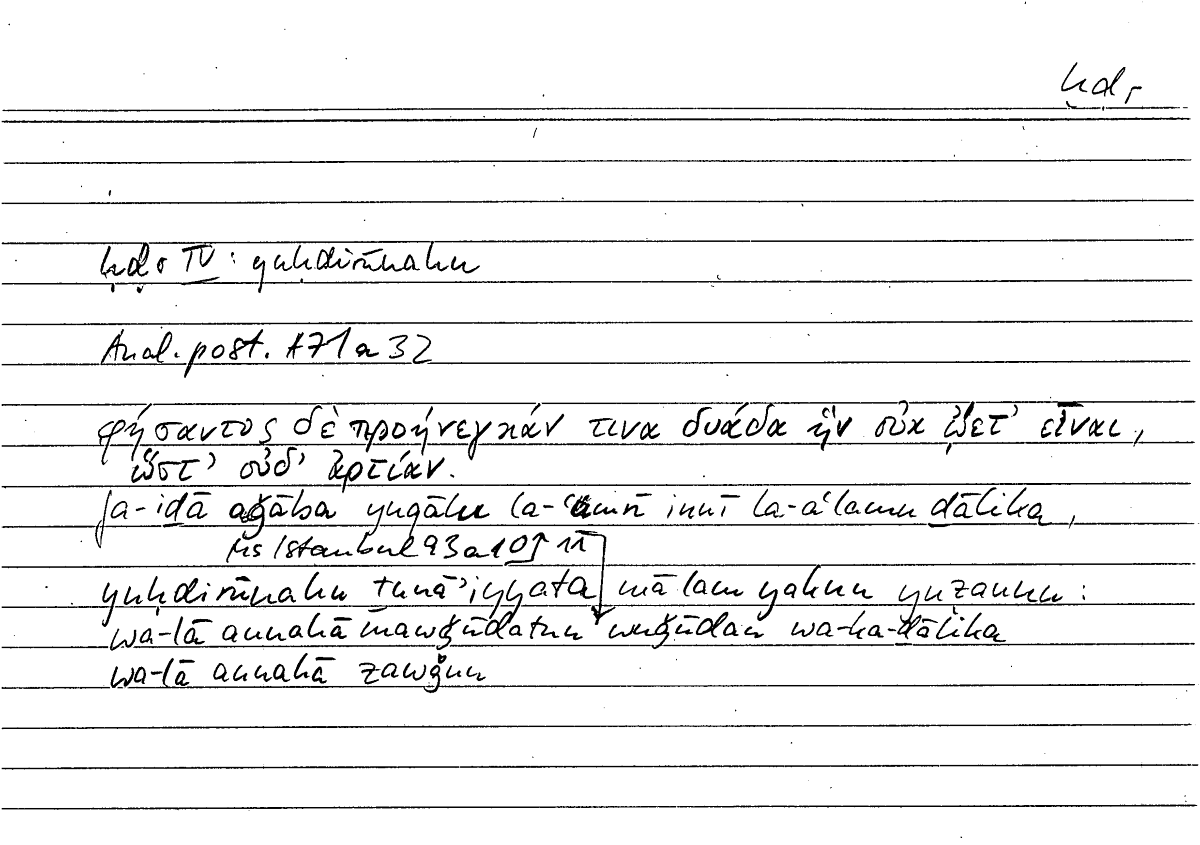 ḥḍr
ḥḍr IV: yuḥḍirūnahu
Anal. post. A 71 a 32
φήσαντος δὲ προήνεγκάν τινα δυάδα ἣν οὐκ ᾤετ’ εἶναι,
ὥστ’ οὐδ’ ἀρτίαν.
fa-iḏā aǧāba yuqālu innī la-aʿlamu ḏālika,
Ms Istanbul 93 a 10 ↑ 11
yuḥḍirūnahu ṯunāʾiyyata mā lam yakun yuẓannu:
wa-lā annahā mawǧūdatun wuǧūdan wa-ka-ḏālika
wa-lā annahā zawǧun